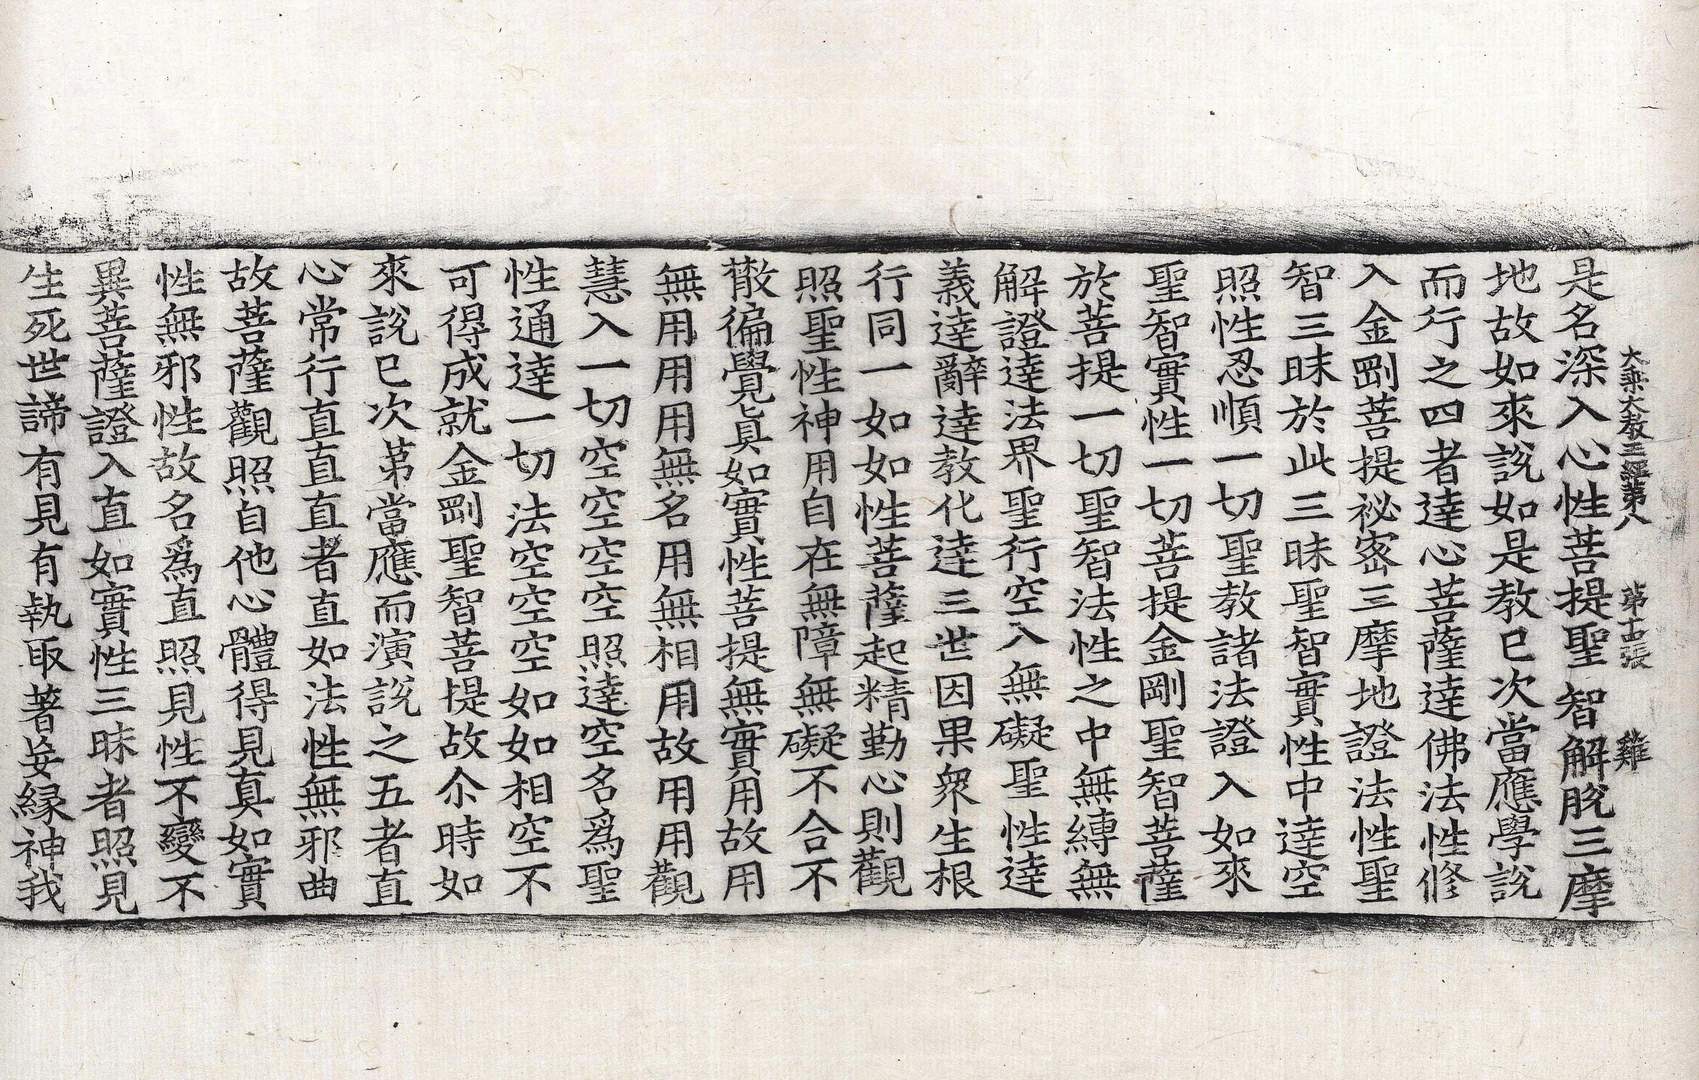 大乘大教王經第八 第十五張 雞
是名深入心性菩提聖智解脫三摩
地故如來說如是教已次當應學說
而行之四者達心菩薩達佛法性修
入金剛菩提祕密三摩地證法性聖
智三昧於此三昧聖智實性中達空
照性忍順一切聖教諸法證入如來
聖智實性一切菩提金剛聖智菩薩
於菩提一切聖智法性之中無縛無
解證達法界聖行空入無礙聖性達
義達辭達教化達三世因果衆生根
行同一如如性菩薩起精勤心則觀
照聖性神用自在無障無礙不合不
散徧覺真如實性菩提無實用故用
無用用用無名用無相用故用用觀
慧入一切空空空空照達空名為聖
性通達一切法空空空如如相空不
可得成就金剛聖智菩提故尒時如
來說已次第當應而演說之五者直
心常行直直直者直如法性無邪曲
故菩薩觀照自他心體得見真如實
性無邪性故名為直照見性不變不
異菩薩證入直如實性三昧者照見
生死世諦有見有執取著妄緣神我